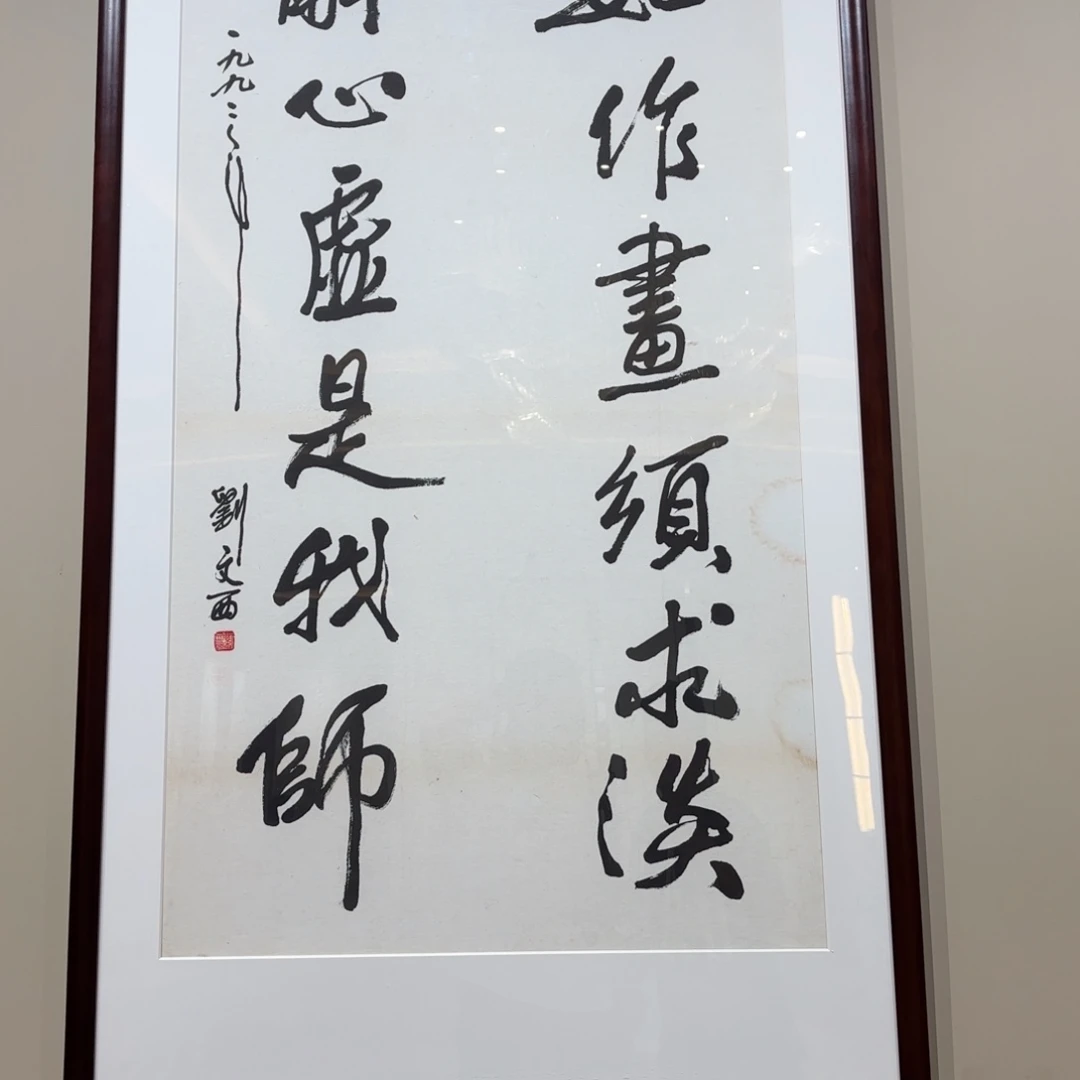 如作畫須求淡
解心虛是我師
一九九三年
劉文西